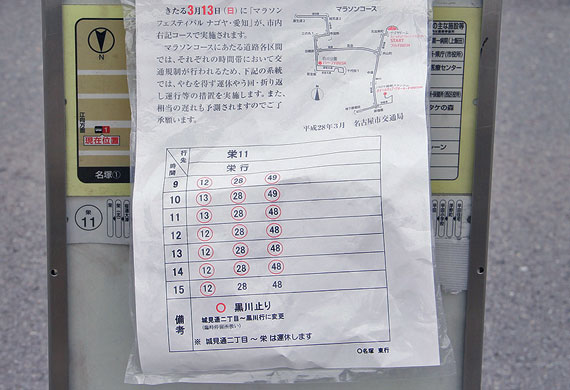 きたる3月13日（日）に「マラソン
フェスティバル ナゴヤ・愛知」が、市内
右記コースで実施されます。
マラソンコースにあたる道路各区間
では、それぞれの時間帯において交
通規制が行われるため、下記の系統
では、やむを得ず運休やう回・折り返
し運行等の措置を実施します。また、
相当の遅れも予測されますのでご了
承願います。
マラソンコース
START
平成28年3月 名古屋市交通局
N
江向方面
1
現在位置
名塚①
栄
11
行先
時間
栄11
栄 行
9 12 28 49
10 13 28 49
11 13 28 48
12 12 28 48
13 12 28 48
14 12 28 48
15 12 28 48
備考
○ 黒川止り
城見通二丁目～黒川行に変更
※ 城見通二丁目 ～ 栄 は運休します
○名塚 東行
の主な施設等
ケの森